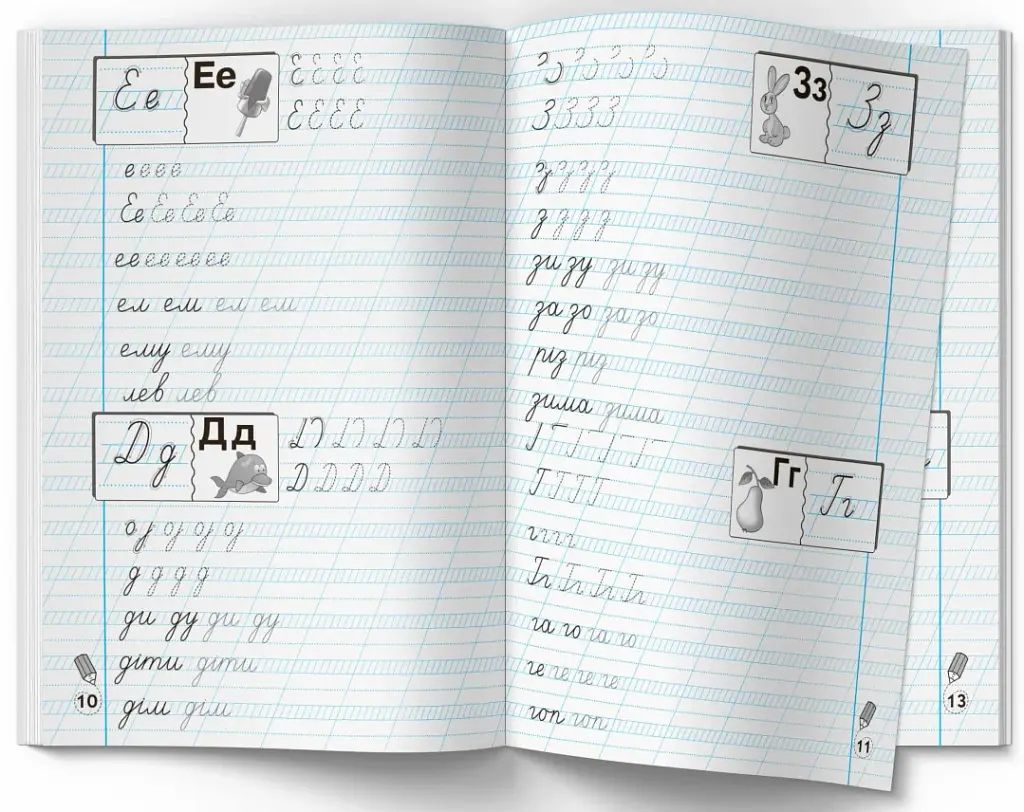 Ее Ее Е Е Е Е
Е Е Е Е
е е е е
Ее Ее Ее Ее
ее ее ее ее
ел ем ел ем
ему ему
лев лев
Дд Дд Д Д Д Д
Д Д Д Д
д д д д
д д д д
ди ду ди ду
діти діти
дім дім
10
З З З З Зз Зз
З З З З
з з з з
з з з з
зи зу зи зу
за зо за зо
різ різ
зима зима
Г Г Г Г
Г Г Г Г Гг Гг
г г г г
Гг Гг Гг Гг
га го га го
ге ге ге ге
гоп гоп
11
13